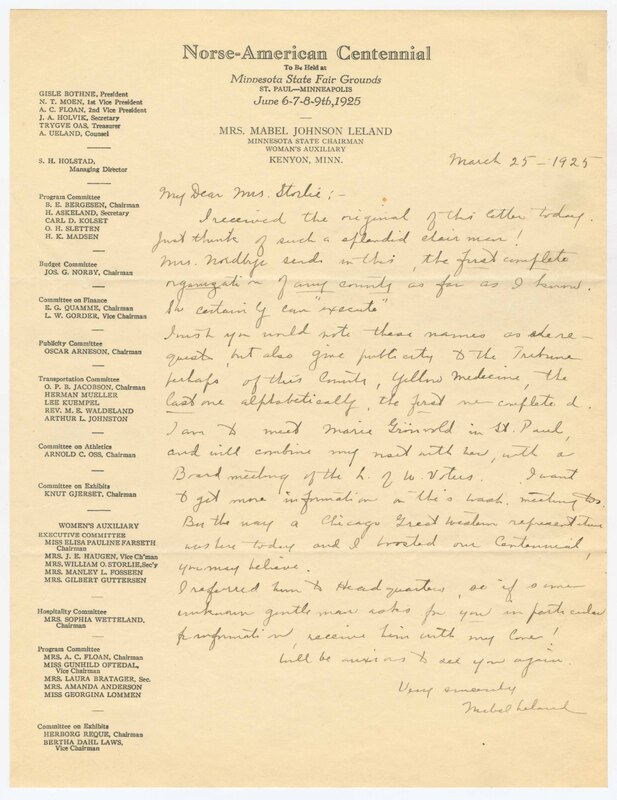 Norse-American Centennial
To Be Held at
Minnesota State Fair Grounds
ST. PAUL—MINNEAPOLIS
June 6-7-8-9th, 1925
MRS. MABEL JOHNSON LELAND
MINNESOTA STATE CHAIRMAN
WOMAN'S AUXILIARY
KENYON, MINN.
GISLE BOTHNE, President
N. T. MOEN, 1st Vice President
A. C. FLOAN, 2nd Vice President
J. A. HOLVIK, Secretary
TRYGVE OAS, Treasurer
A. UELAND, Counsel
S. H. HOLSTAD,
Managing Director
Program Committee
B. E. BERGESEN, Chairman
H. ASKELAND, Secretary
CARL D. KOLSET
O. H. SLETTEN
H. K. MADSEN
Budget Committee
JOS. G. NORBY, Chairman
Committee on Finance
E. G. QUAMME, Chairman
L. W. GORDER, Vice Chairman
Publicity Committee
OSCAR ARNESON, Chairman
Transportation Committee
O. P. B. JACOBSON, Chairman
HERMAN MUELLER
LEE KUEMPEL
REV. M. E. WALDELAND
ARTHUR L. JOHNSTON
Committee on Athletics
ARNOLD C. OSS, Chairman
Committee on Exhibits
KNUT GJERSET, Chairman
WOMEN'S AUXILIARY
EXECUTIVE COMMITTEE
MISS ELISA PAULINE FARSETH
Chairman
MRS. J. E. HAUGEN, Vice Ch'man
MRS. WILLIAM O. STORLIE, Sec'y
MRS. MANLEY L. FOSSEEN
MRS. GILBERT GUTTERSEN
Hospitality Committee
MRS. SOPHIA WETTELAND,
Chairman
Program Committee
MRS. A. C. FLOAN, Chairman
MISS GUNHILD OFTEDAL,
Vice Chairman
MRS. LAURA BRATAGER, Sec.
MRS. AMANDA ANDERSON
MISS GEORGINA LOMMEN
Committee on Exhibits
HERBORG REQUE, Chairman
BERTHA DAHL LAWS,
Vice Chairman
March 25 - 1925
My Dear Mrs. Storlie; -
I received the original of this letter today.
Just think of such a splendid chairman!
Mrs. Nordbye sends in this, the first complete
organization of any county as far as I know.
She certainly can "execute"
I wish you would note these names as she re-
quests, but also give publicity to the Tribune
perhaps of this County, Yellow Medicine, the
last one alphabetically, the first one completed.
I am to meet Marie Grinvold in St. Paul,
and will combine my visit with her, with a
Board meeting of the L. of W. Voters. I want
to get more information on this wash. meeting too.
By the way a Chicago Great Western representative
was here today and I boosted our Centennial,
you may believe.
I referred him to Headquarters, so if some
unknown gentleman asks for you in particular
for information, receive him with my love!
Will be anxious to see you again.
Very sincerely
Mabel Leland